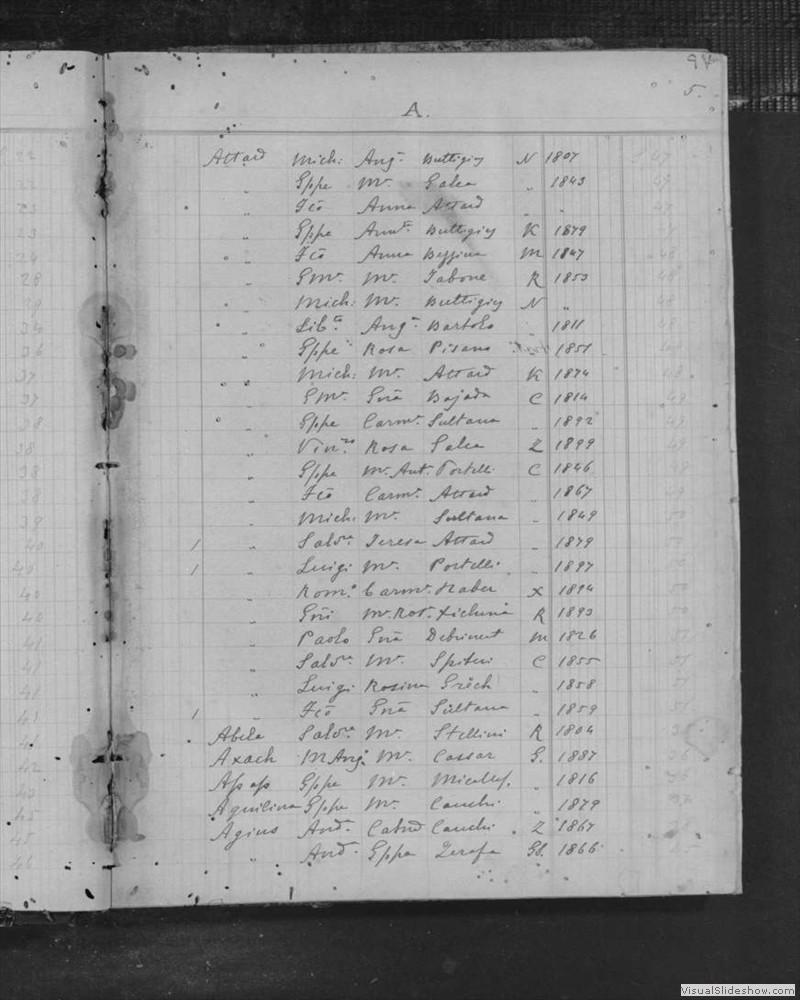 5.
A.
Attard Mich: Angᵃ Buttigieg N 1807
" Gppe Mᵃ Galea " 1843
" Fcō Anna Attard " "
" Gppe Antᵃ Buttigieg K 1879
" Fcō Anna Bezzina M 1847
" Gmᵃ Mᵃ Tabone R 1853
" Mich: Mᵃ Buttigieg N "
" Libᵗᵒ Angᵃ Bartolo " 1811
" Gppe Rosa Pisano 1851
" Mich: Mᵃ Attard K 1874
" Gmᵃ Gnā Bajada C 1814
" Gppe Carmᵃ Sultana " 1892
" Vinᶻᵒ Rosa Galea Z 1899
" Gppe Mᵃ Ant. Portelli C 1846
" Fcō Carmᵃ Attard " 1867
" Mich: Mᵃ Sultana " 1849
1 " Salvʳᵉ Teresa Attard " 1879
1 " Luigi Mᵃ Portelli " 1897
" Romᵒ Carmᵃ Haber X 1894
" Gnī Mᵃ Ros. Xicluna R 1893
" Paolo Gnā Debrincat M 1826
" Salvʳᵉ Mᵃ Spiteri C 1855
" Luigi Rosina Grech " 1858
1 " Fcō Gnā Sultana " 1859
Abela Salvʳᵉ Mᵃ Stellini R 1804
Axach M Angᵒ Mᵃ Cassar G. 1887
Apap Gppe Mᵃ Micallef. " 1816
Aquilina Gppe Mᵃ Cauchi " 1879
Agius Andᵃ Catnā Cauchi Z 1867
" Andᵃ Gppa Zerafa Gb. 1866
VisualSlideshow.com